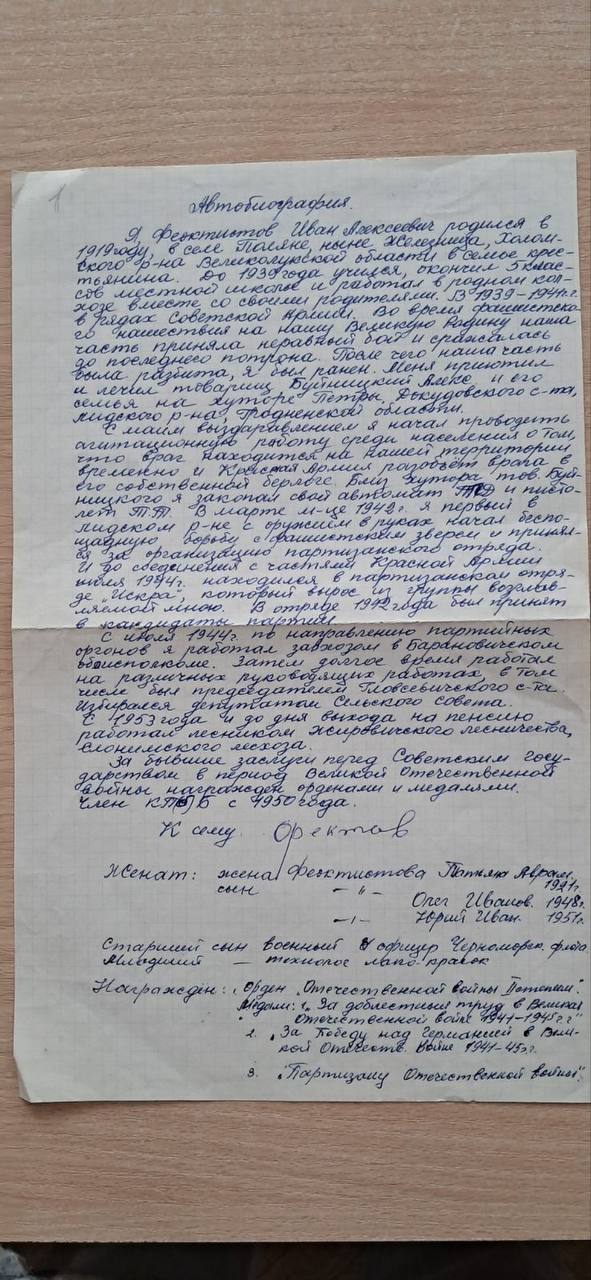 1
Автобиография.
Я, Феоктистов Иван Алексеевич родился в
1919 году, в селе Поляне, ныне Железница, Холм-
ского р-на Великолукской области в семье крес-
тьянина. До 1939 года учился, окончил 5 клас-
сов местной школы и работал в родном кол-
хозе вместе со своими родителями. В 1939-1941 г.г.
в рядах Советской Армии. Во время фашистско-
го нашествия на нашу Великую Родину наша
часть приняла неравный бой и сражалась
до последнего потрона. После чего наша часть
была разбита, я был ранен. Меня приютил
и лечил товарищ Буйницкий Алекс. и его
семья на хуторе Петры, Докудовского с-та,
Лидского р-на, Гродненской области.
С маим выздаравлением я начал проводить
агитационную работу среди населения о том,
что враг находится на нашей территории
временно и Красная Армия разобьёт врага в
его собственной берлоге. Близ хутора тов. Буй-
ницкого я закопал свой автомат и писто-
лет Т.Т. В марте м-це 1942 г. я первый в
Лидском р-не с оружием в руках начал беспо-
щадную борьбу с фашистским зверем и принял-
ся за организацию партизанского отряда.
И до соединения с частями Красной Армии
июля 1944 г. находился в партизанском отря-
де "Искра", который вырос из группы возглав-
ляемой мною. В отряде 1942 года был принят
в кандидаты партии.
С июля 1944 г. по направлению партийных
органов я работал завхозом в Барановическом
облисполкоме. Затем долгое время работал
на различных руководящих работах, в том
числе был председателем с-та.
Избирался депутатом Сельского Совета.
С 1953 года и до дня выхода на пенсию
работал лесником Жировичского лесничества,
Слонимского лесхоза.
За бывшие заслуги перед Советским госу-
дарством в период Великой Отечественной
войны награждён орденами и медалями.
Член КПБ с 1950 года.
К сему
Женат: жена Феоктистова Аврам.
1921 г.
сын -"- Олег Иванов. 1948 г.
-"- Юрий Иван. 1951 г.
Старший сын военный офицер Черноморск. флота
Младший - технолог лако-красок
Награждён: Орден "Отечественной войны
Медали: 1. "За доблестный труд в Великой
Отечественной войне 1941-1945 г г"
2. "За Победу над Германией в Вели-
кой Отечеств. войне 1941-45 г.г.
3. "Партизану Отечественной войны".